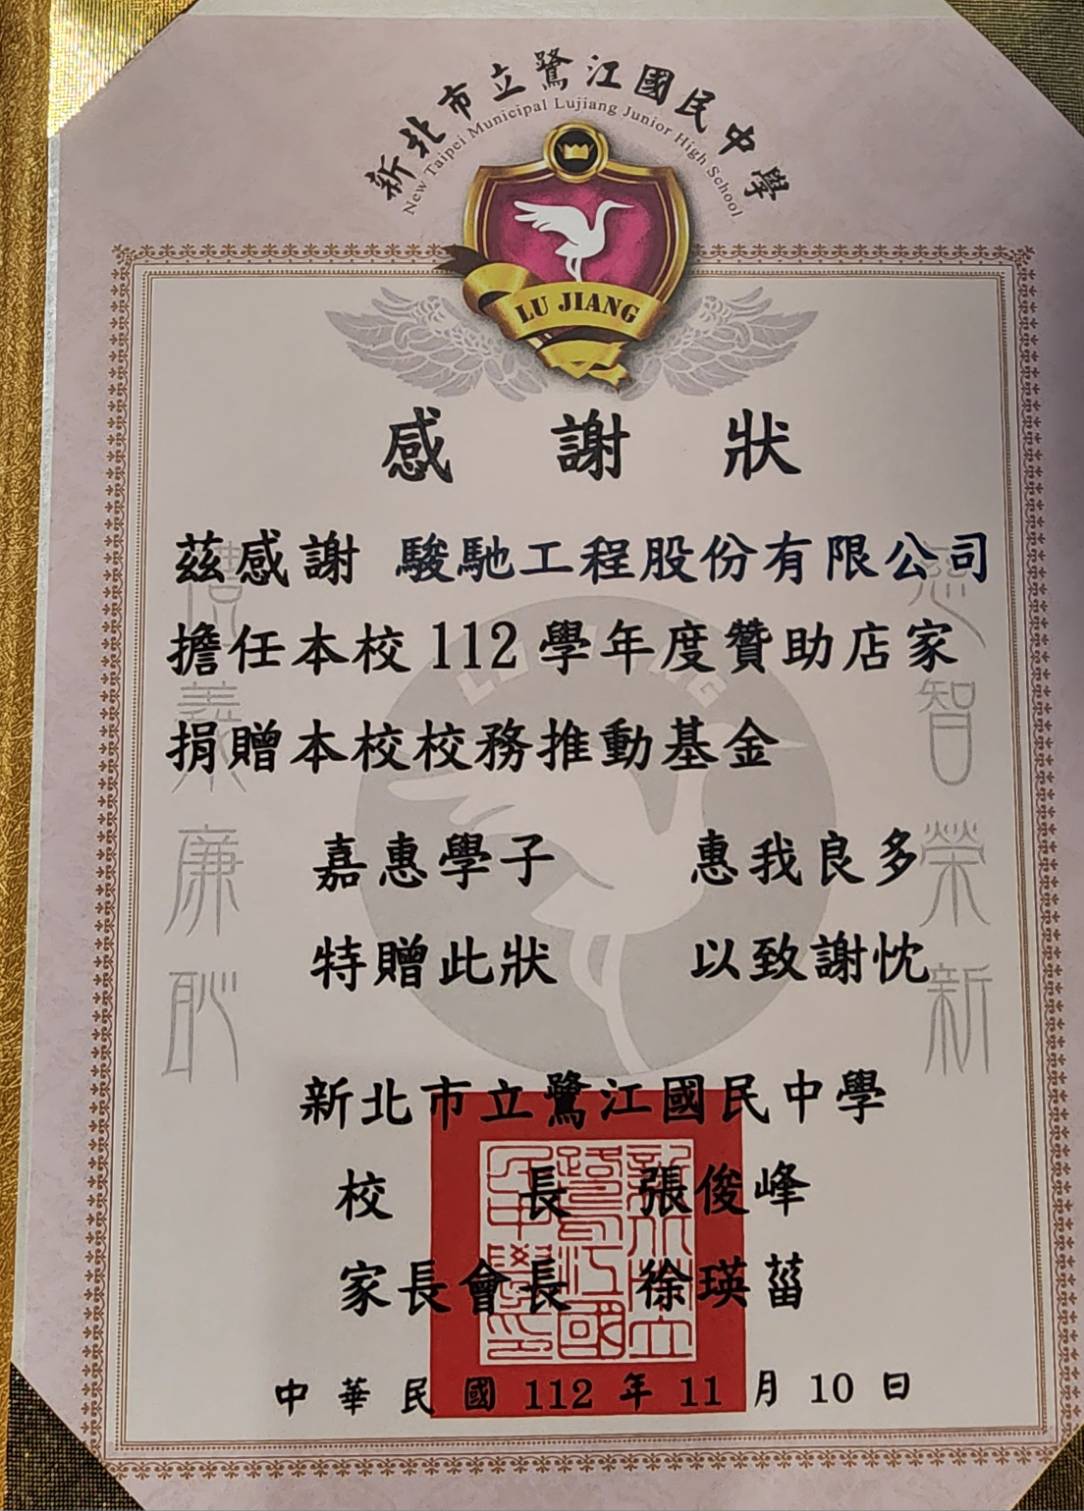 新北市立鷺江國民中學
New Taipei Municipal Lujiang Junior High School
LU JIANG
感謝狀
茲感謝 駿馳工程股份有限公司
擔任本校112學年度贊助店家
捐贈本校校務推動基金
嘉惠學子 惠我良多
特贈此狀 以致謝忱
禮義廉恥
慈智榮新
新北市立鷺江國民中學
校長 張俊峰
家長會長 徐瑛
中華民國112年11月10日